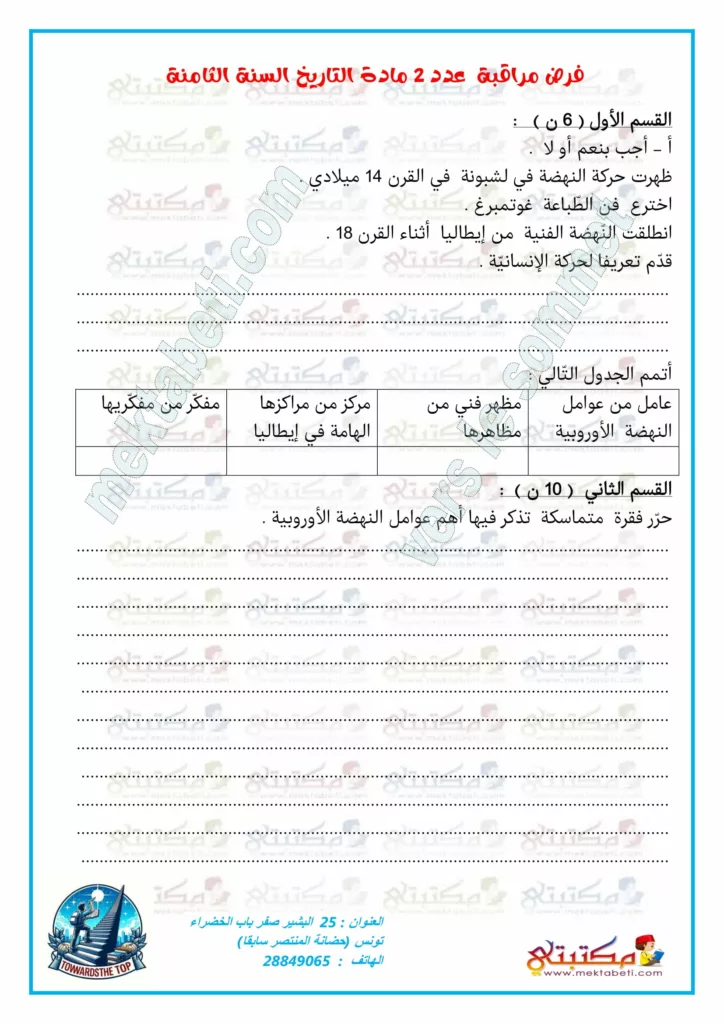 فرض مراقبة عدد 2 مادة التاريخ السنة الثامنة
القسم الأول ( 6 ن ) :
أ – أجب بنعم أو لا .
ظهرت حركة النهضة في لشبونة في القرن 14 ميلادي .
اخترع فن الطّباعة غوتمبرغ .
انطلقت النّهضة الفنية من إيطاليا أثناء القرن 18 .
قدّم تعريفا لحركة الإنسانيّة .
أتمم الجدول التّالي :
عامل من عوامل النهضة الأوروبية
مظهر فني من مظاهرها
مركز من مراكزها الهامة في إيطاليا
مفكّر من مفكّريها
القسم الثاني ( 10 ن ) :
حرّر فقرة متماسكة تذكر فيها أهم عوامل النهضة الأوروبية .
mektabeti.com
vers le sommet
العنوان : 25 البشير صفر باب الخضراء
تونس (حضانة المنتصر سابقا)
الهاتف : 28849065
TOWARDSTHE TOP
مكتبتي
www.mektabeti.com